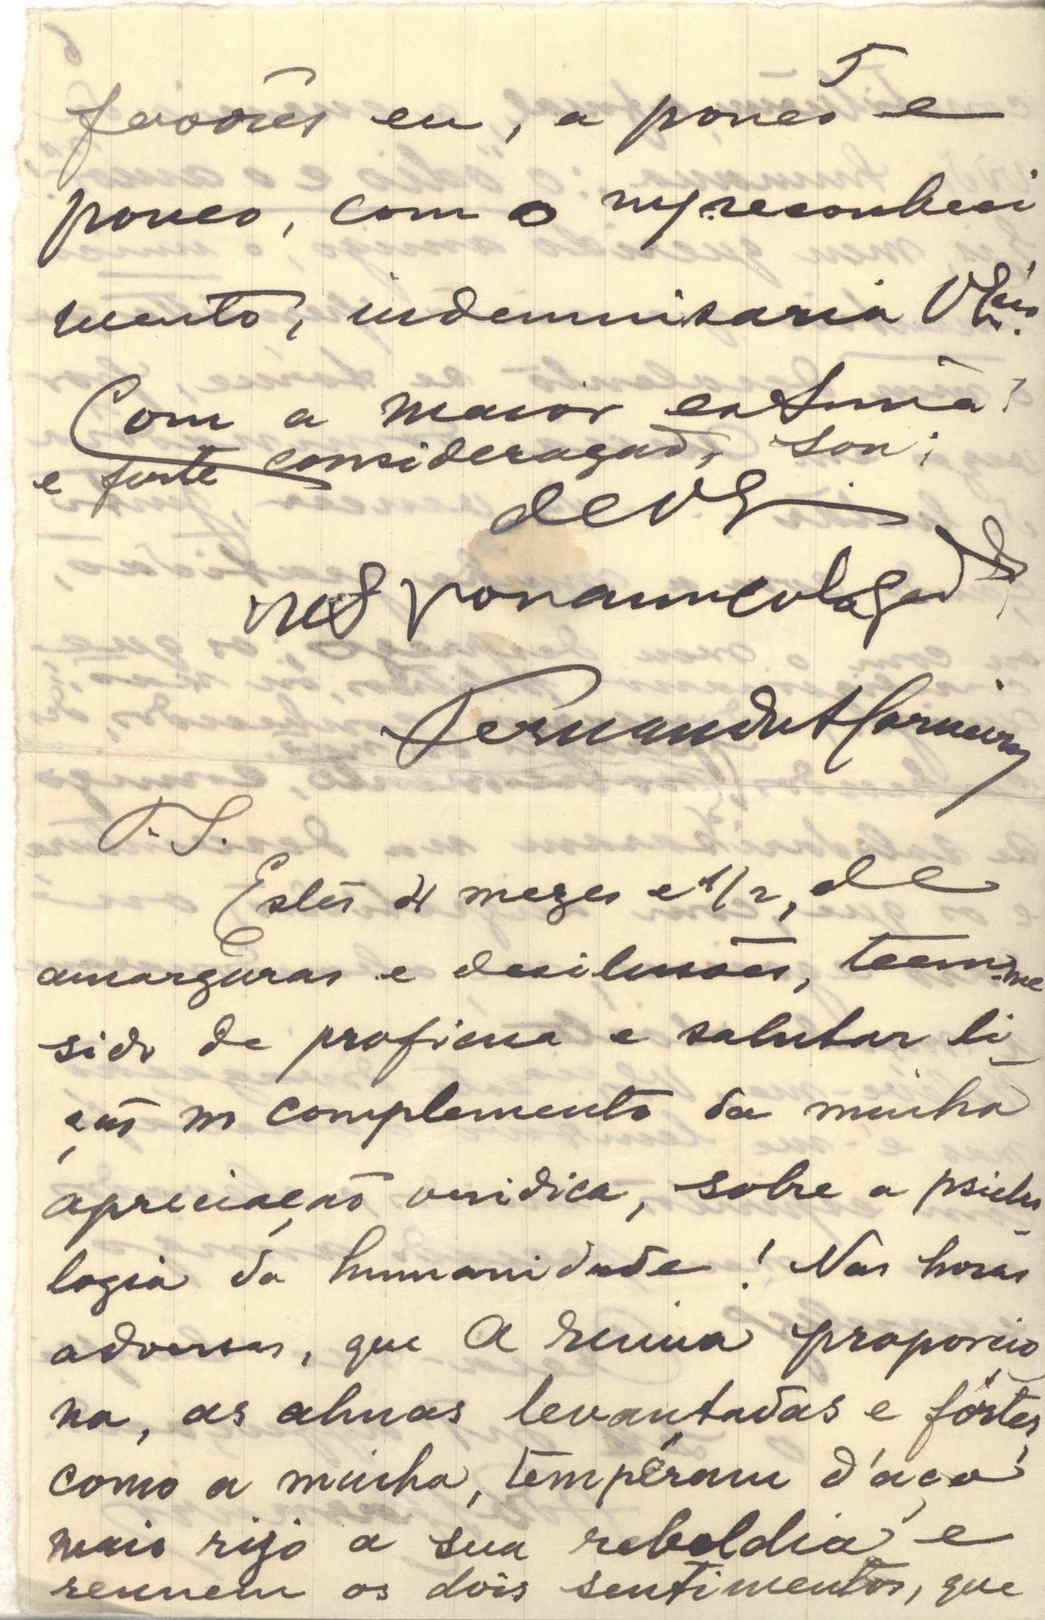 5
favores eu, a pouco e
pouco, com o reconheci
mento, indemnisaria
Com a maior estima
e forte consideração, sou;
de
Fernando Carneiro
P. S.
Estes 4 mezes e 1/2, de
amarguras e desilusões, teem-me
sido de proficua e salutar li
ção no complemento da minha
apreciação veridica, sobre a psicho
logia da humanidade! Nas horas
adversas, que a ruina proporcio
na, as almas levantadas e fórtes,
como a minha, tempéram d'aço
mais rijo a sua rebeldia e
reunem os dois sentimentos, que